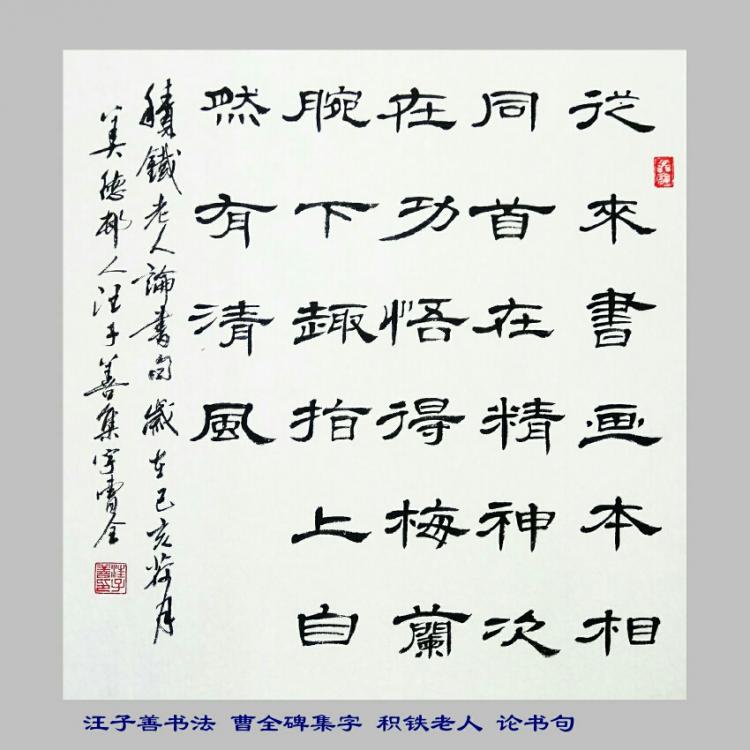 從來書画本相
同首在精神次
在功悟得梅蘭
腕下趣指上自
然有清風
積鐵老人論書句歲在己亥荷月
美德邨人汪子善集字曹全
汪子善印
汪子善书法 曹全碑集字 积铁老人 论书句